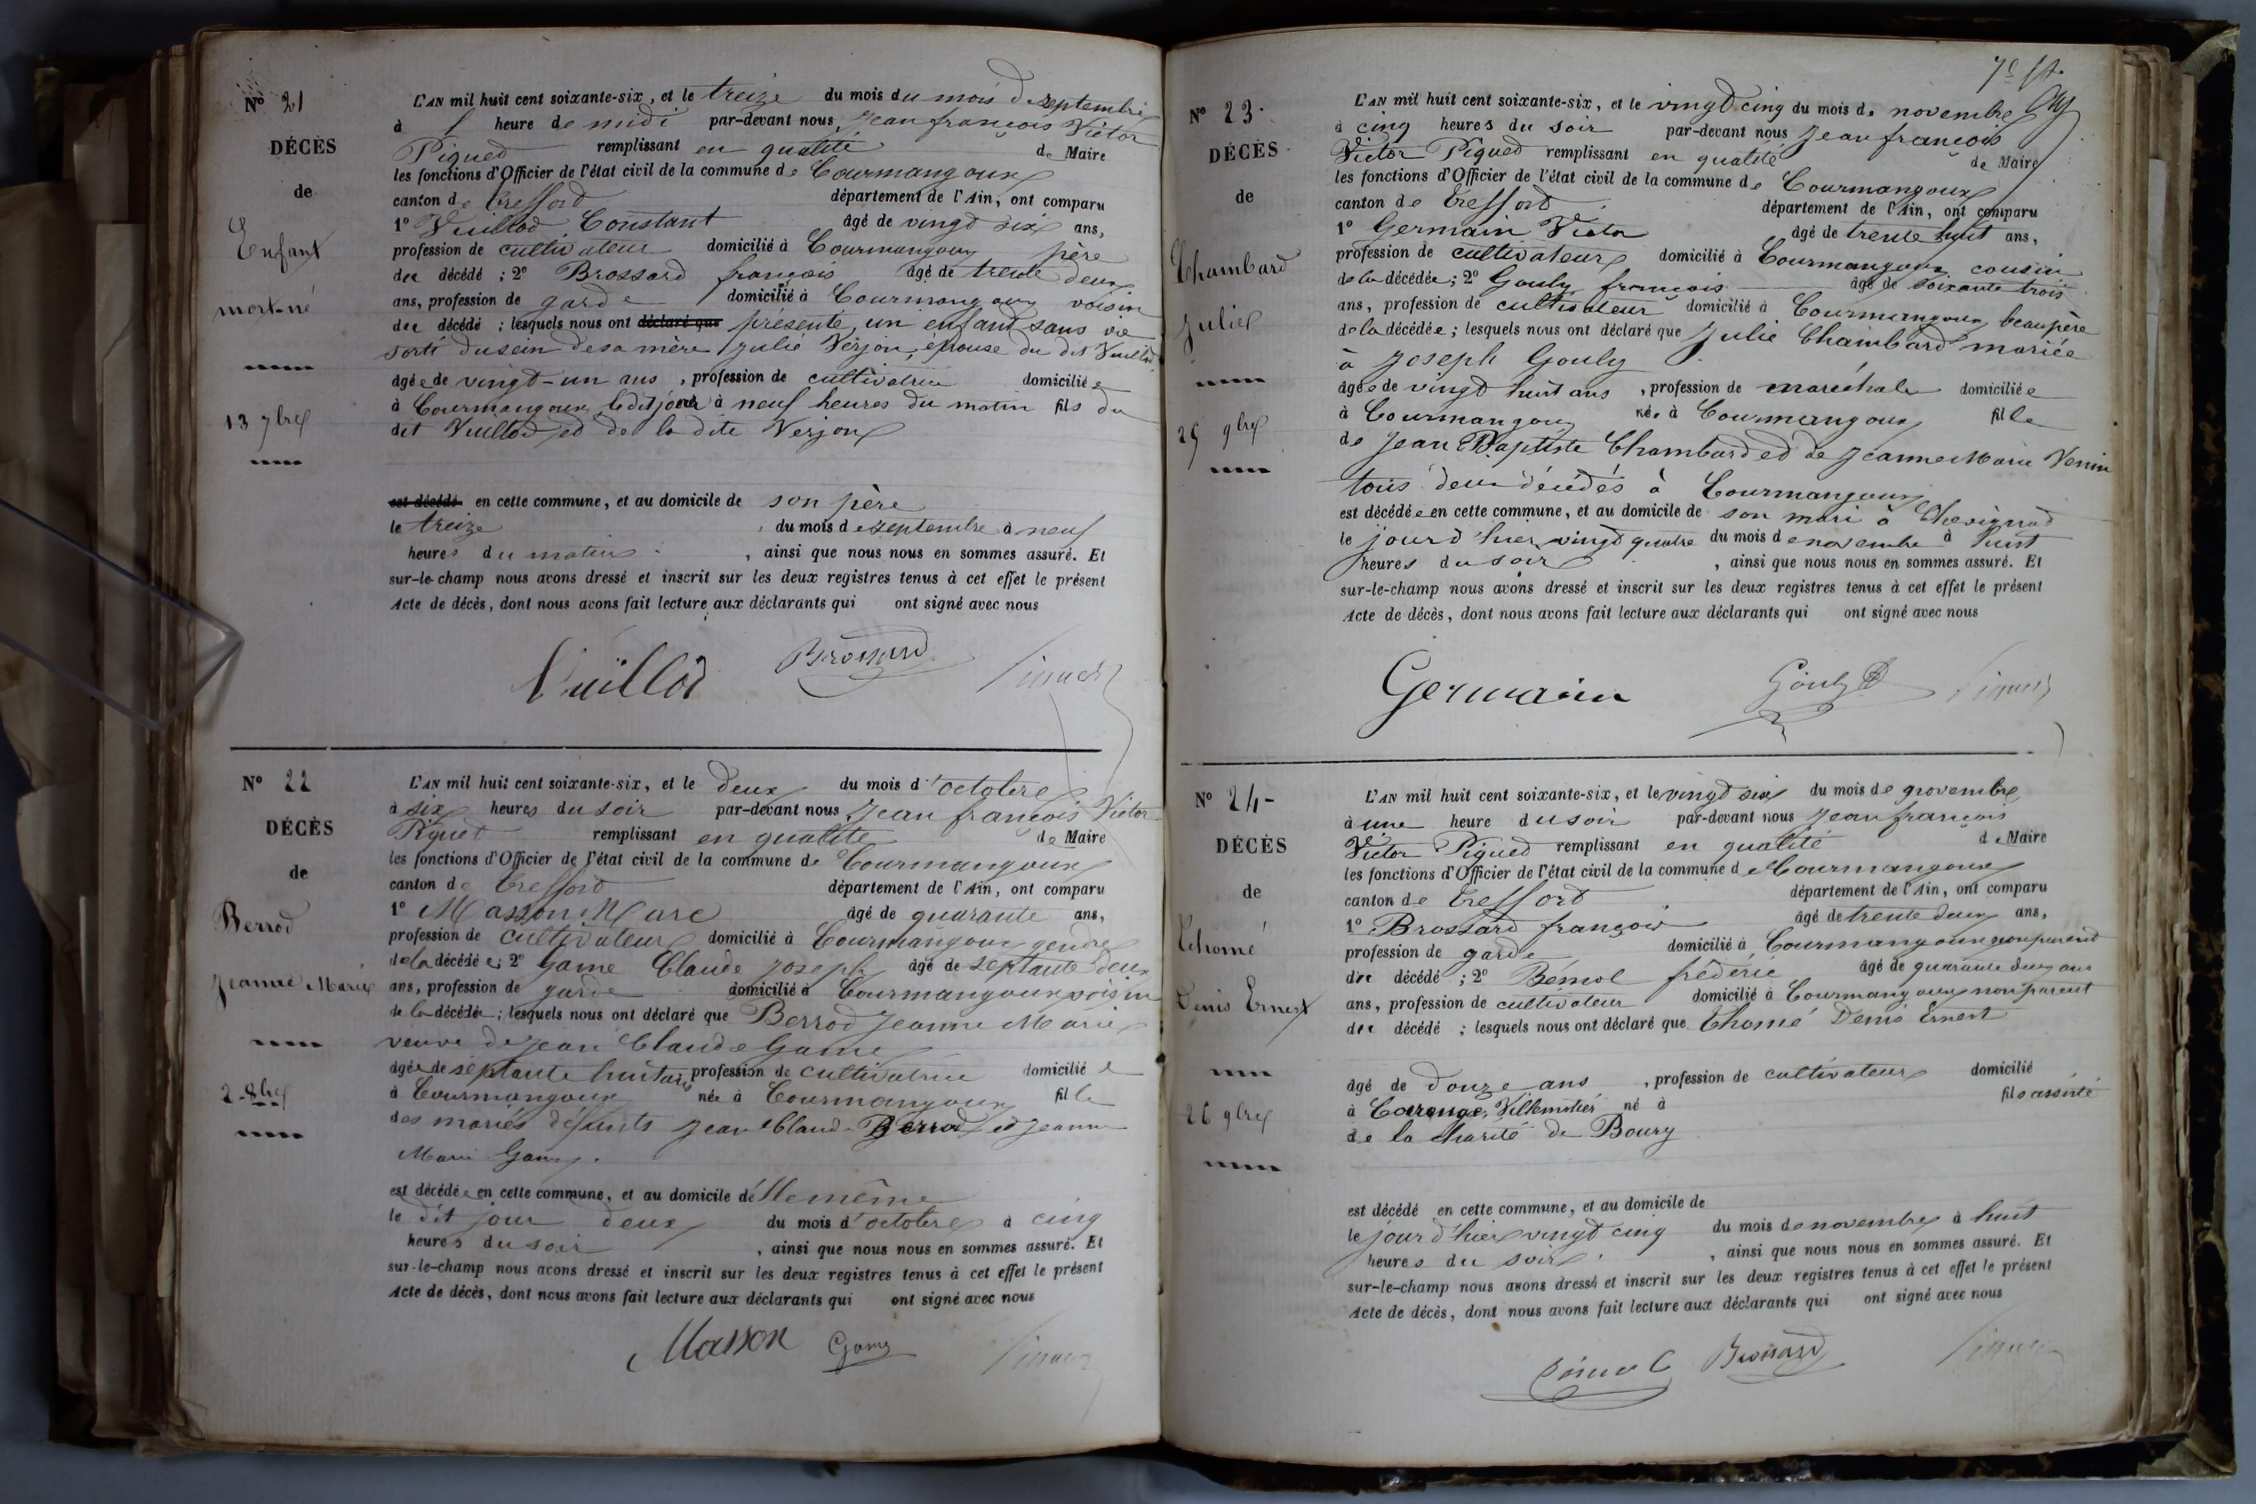 N° 21
DÉCÈS
de
Enfant
mort-né
13 7bre
L'AN mil huit cent soixante-six, et le treize du mois du mois de septembre
à 1 heure de midi par-devant nous Jean françois Victor
Piqued remplissant en qualité de Maire
les fonctions d'Officier de l'état civil de la commune de Courmangoux
canton de Treffort département de l'Ain, ont comparu
1° Vuillod Constant âgé de vingt six ans,
profession de cultivateur domicilié à Courmangoux père
du décédé ; 2° Brossard françois âgé de trente deux
ans, profession de garde domicilié à Courmangoux voisin
du décédé ; lesquels nous ont déclaré que présenté, un enfant sans vie
sorti du sein de sa mère Julie Verjon, épouse du dit Vuillod,
âgée de vingt-un ans, profession de cultivatrice domiciliée
à Courmangoux, ledit jour à neuf heures du matin fils du
dit Vuillod et de la dite Verjon
est décédé en cette commune, et au domicile de son père
le treize du mois de septembre à neuf
heures du matin, ainsi que nous nous en sommes assuré. Et
sur-le-champ nous avons dressé et inscrit sur les deux registres tenus à cet effet le présent
Acte de décès, dont nous avons fait lecture aux déclarants qui ont signé avec nous
Vuillod Brossard Piqued
N° 22
DÉCÈS
de
Berrod
Jeanne Marie
2 8bre
L'AN mil huit cent soixante-six, et le deux du mois d'octobre
à six heures du soir par-devant nous Jean françois Victor
Piqued remplissant en qualité de Maire
les fonctions d'Officier de l'état civil de la commune de Courmangoux
canton de Treffort département de l'Ain, ont comparu
1° Masson Marc âgé de quarante ans,
profession de cultivateur domicilié à Courmangoux gendre
de la décédée; 2° Game Claude Joseph âgé de septante deux
ans, profession de garde domicilié à Courmangoux voisin
de la décédée; lesquels nous ont déclaré que Berrod Jeanne Marie
veuve de Jean Claude Game
âgée de septante huit ans profession de cultivatrice domiciliée
à Courmangoux née à Courmangoux fille
des mariés défunts Jean Claude Berrod et Jeanne
Marie Game.
est décédée en cette commune, et au domicile d'elle même
le dit jour deux du mois d'octobre à cinq
heures du soir, ainsi que nous nous en sommes assuré. Et
sur-le-champ nous avons dressé et inscrit sur les deux registres tenus à cet effet le présent
Acte de décès, dont nous avons fait lecture aux déclarants qui ont signé avec nous
Masson Game Piqued
N° 23
DÉCÈS
de
Chambard
Julie
25 9bre
L'AN mil huit cent soixante-six, et le vingt cinq du mois de novembre
à cinq heures du soir par-devant nous Jean françois
Victor Piqued remplissant en qualité de Maire
les fonctions d'Officier de l'état civil de la commune de Courmangoux
canton de Treffort département de l'Ain, ont comparu
1° Germain Victor âgé de trente huit ans,
profession de cultivateur domicilié à Courmangoux cousin
de la décédée; 2° Gouly françois âgé de soixante trois
ans, profession de cultivateur domicilié à Courmangoux beau père
de la décédée; lesquels nous ont déclaré que Julie Chambard mariée
à Joseph Gouly
âgée de vingt huit ans, profession de maréchale domiciliée
à Courmangoux née à Courmangoux fille
de Jean Baptiste Chambard et de Jeanne Marie Venin
tous deux décédés à Courmangoux
est décédée en cette commune, et au domicile de son mari à Chevignat
le jour d'hier vingt quatre du mois de novembre à huit
heures du soir, ainsi que nous nous en sommes assuré. Et
sur-le-champ nous avons dressé et inscrit sur les deux registres tenus à cet effet le présent
Acte de décès, dont nous avons fait lecture aux déclarants qui ont signé avec nous
Germain Gouly Piqued
N° 24
DÉCÈS
de
Thomé
Denis Ernest
26 9bre
L'AN mil huit cent soixante-six, et le vingt six du mois de novembre
à une heure du soir par-devant nous Jean françois
Victor Piqued remplissant en qualité de Maire
les fonctions d'Officier de l'état civil de la commune de Courmangoux
canton de Treffort département de l'Ain, ont comparu
1° Brossard françois âgé de trente deux ans,
profession de garde domicilié à Courmangoux non parent
du décédé ; 2° Bémol frédéric âgé de quarante deux ans
ans, profession de cultivateur domicilié à Courmangoux non parent
du décédé ; lesquels nous ont déclaré que Thomé Denis Ernest
âgé de douze ans, profession de cultivateur domicilié
à Villemotier né à fils assisté
de la charité de Bourg
est décédé en cette commune, et au domicile de
le jour d'hier vingt cinq du mois de novembre à huit
heures du soir, ainsi que nous nous en sommes assuré. Et
sur-le-champ nous avons dressé et inscrit sur les deux registres tenus à cet effet le présent
Acte de décès, dont nous avons fait lecture aux déclarants qui ont signé avec nous
Bémol Brossard Piqued